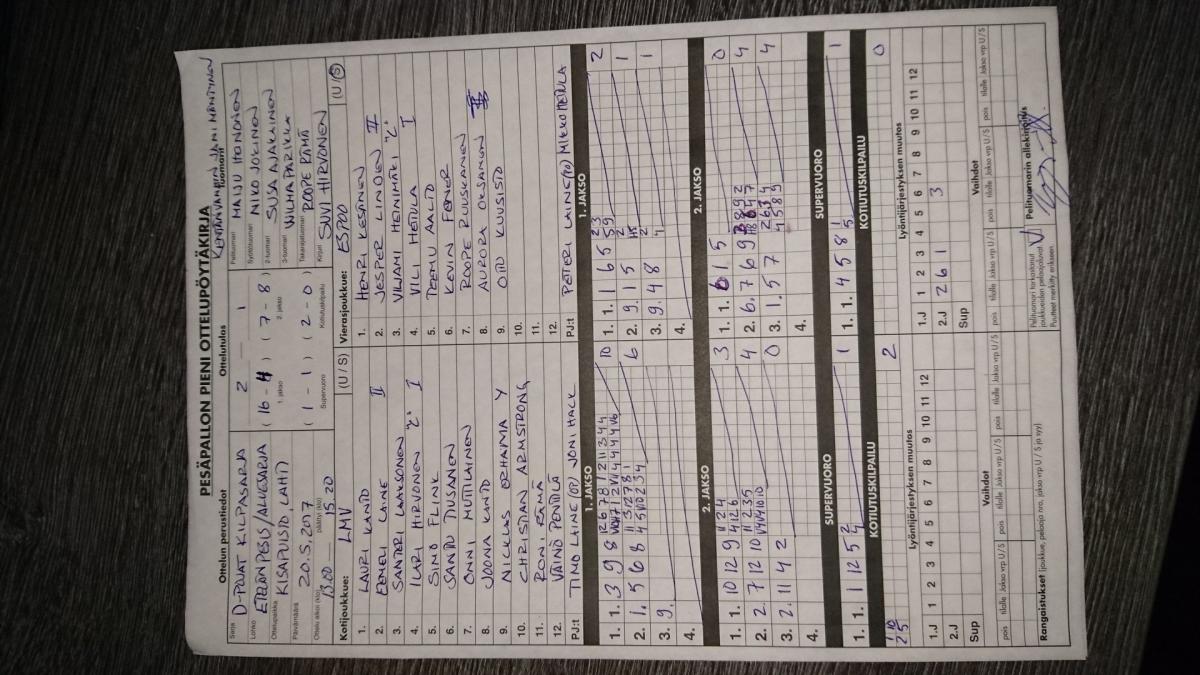 PESÄPALLON PIENI OTTELUPÖYTÄKIRJA
Ottelun perustiedot
Ottelutulos
Tuomarit
JANI MÄNTYNEN
Sarja D-POJAT KILPASARJA
2 1
Pelituomari MAIJU HONGONEN
Lohko ETELÄN PESIS/ALUESARJA
(16 - 4) (7 - 8)
1. jakso 2. jakso
Syöttötuomari NIKO JOKINEN
Ottelupaikka KISAPUISTO, LAHTI
2-tuomari SUSA AJAKAINEN
Päivämäärä 20.5.2017
(1 - 1) (2 - 0)
Supervuoro Kotiutuskilpailu
3-tuomari VILMA PARIKKA
Takarajatuomari ROOPE RÄMÄ
Ottelu alkoi (klo) 13.00 päättyi (klo) 15.20
Kirjuri SUVI HIRVONEN
Kotijoukkue: LMV (U / S)
Vierasjoukkue: ESPOO (U / S)
1. LAURI KANTO
1. HENRI KESÄNEN
2. EEMELI LAINE II
2. JESPER LINDEN II
3. SANTERI LAAKSONEN
3. VILJAMI HEINIMÄKI "C"
4. ILARI HIRVONEN "C" I
4. VILI HETULA I
5. SIMO FLINK
5. TEEMU AALTO
6. SANTO TUSANEN
6. KEVIN FEHÉR
7. ONNI MUTILAINEN
7. ROOPE RUUSKANEN
8. JOONA KANTO
8. AURORA OKSANEN
9. NICKLAS OZHAIMA Y
9. OTTO KUUSISTO
10. CHRISTIAN ARMSTRONG
10.
11. RONI RÄMÄ
11.
12. VÄINÖ PENTTILÄ
12.
PJ:t TIMO LAINE (OP) JONI HACK
PJ:t PETERI LAINE (PO) MIKKO HETULA
1. JAKSO
1. JAKSO
1. 3 9 8 10
1. 1. 1 6 5 2
2. 1. 5 6 8 6
2. 9. 1 5 1
3. 9.
3. 9. 4 8 1
4.
4.
2. JAKSO
2. JAKSO
1. 1. 10 12 9 3
1. 1. 6 1 5 0
2. 2. 7 12 10 4
2. 6. 7 6 9 4
3. 2. 11 4 2 0
3. 1. 5 7 4
4.
4.
SUPERVUORO
SUPERVUORO
1. 1. 1 12 5 1
1. 1. 4 5 8 1
KOTIUTUSKILPAILU
KOTIUTUSKILPAILU
2
0
Lyöntijärjestyksen muutos
Lyöntijärjestyksen muutos
1 2 3 4 5 6 7 8 9 10 11 12
1 2 3 4 5 6 7 8 9 10 11 12
1.J
1.J
2.J
2.J 2 6 1 3
Sup
Sup
Vaihdot
Vaihdot
pois tilalle Jakso vrp U / S pois tilalle Jakso vrp U / S
pois tilalle Jakso vrp U / S pois tilalle Jakso vrp U / S
Rangaistukset (joukkue, pelaaja nro, jakso vrp U / S ja syy)
Pelituomari tarkastanut
joukkueiden pelaajaluvat
Puutteet merkitty erikseen
Pelituomarin allekirjoitus